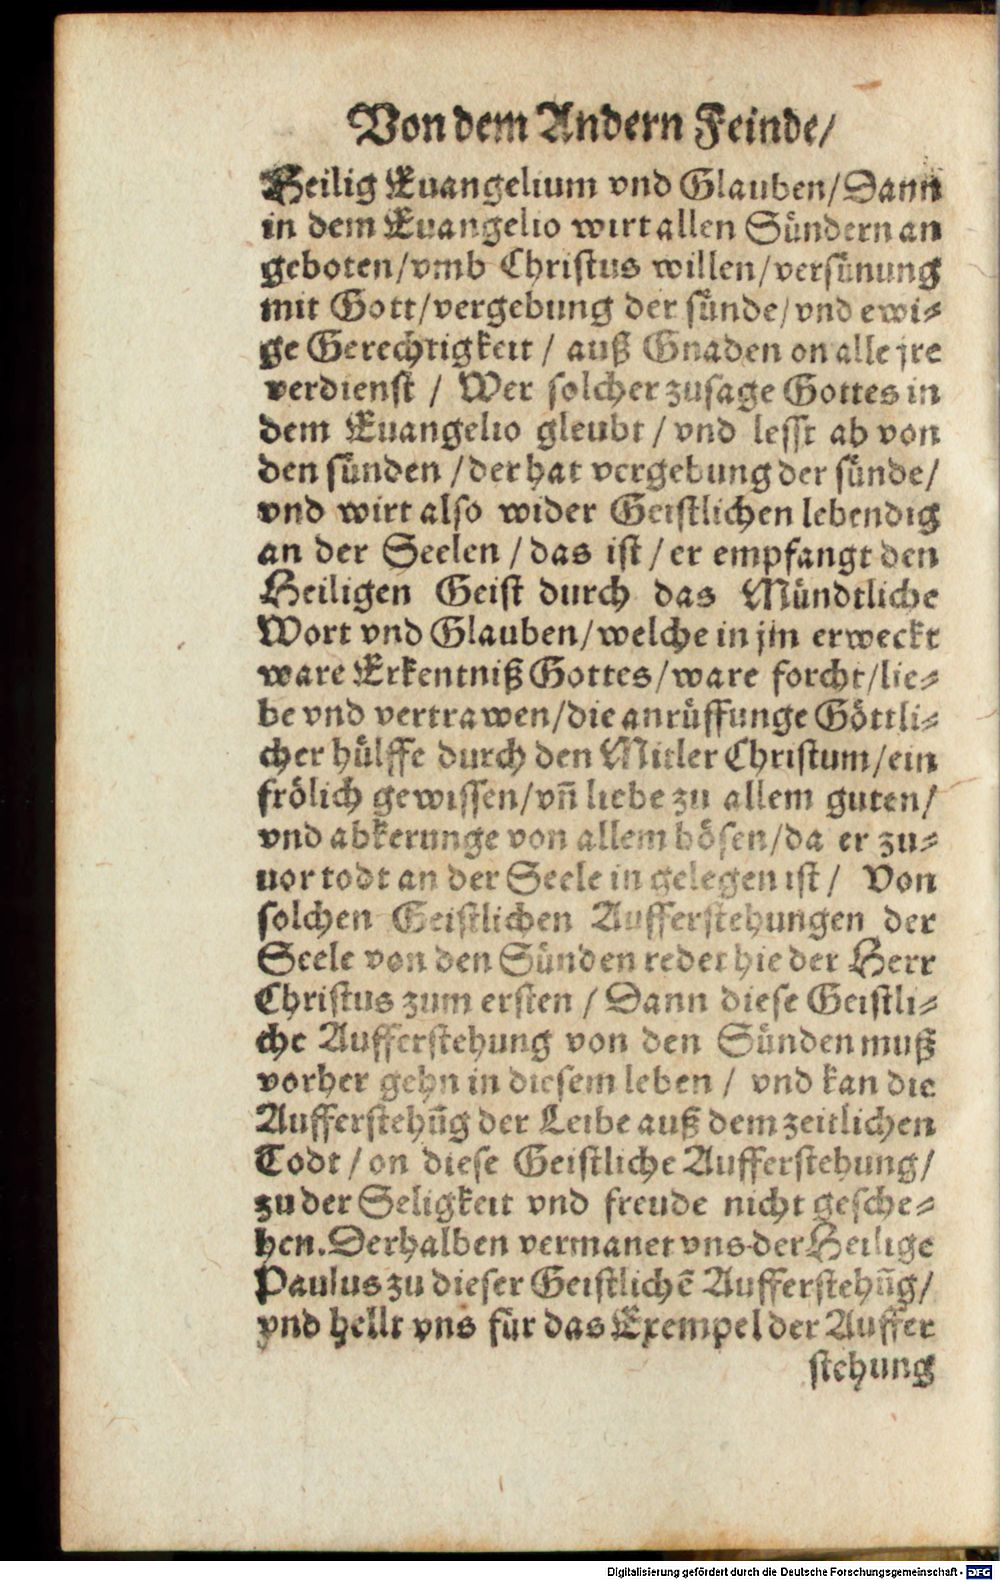 Von dem Andern Feinde/
Heilig Euangelium vnd Glauben/Dann
in dem Euangelio wirt allen Sündern an
geboten/vmb Christus willen/versünung
mit Gott/vergebung der sünde/vnd ewi⸗
ge Gerechtigkeit / auß Gnaden on alle jre
verdienst / Wer solcher zusage Gottes in
dem Euangelio gleubt / vnd lesst ab von
den sünden /der hat vergebung der sünde/
vnd wirt also wider Geistlichen lebendig
an der Seelen / das ist / er empfangt den
Heiligen Geist durch das Mündtliche
Wort vnd Glauben/welche in jm erweckt
ware Erkentniß Gottes/ware forcht/lie⸗
be vnd vertrawen/die anrüffunge Göttli⸗
cher hülffe durch den Mitler Christum/ein
frölich gewissen/vn̄ liebe zu allem guten/
vnd abkerunge von allem bösen/da er zu⸗
uor todt an der Seele in gelegen ist / Von
solchen Geistlichen Aufferstehungen der
Seele von den Sünden redet hie der Herr
Christus zum ersten / Dann diese Geistli⸗
che Aufferstehung von den Sünden muß
vorher gehn in diesem leben / vnd kan die
Aufferstehūg der Leibe auß dem zeitlichen
Todt / on diese Geistliche Aufferstehung/
zu der Seligkeit vnd freude nicht gesche⸗
hen. Derhalben vermanet vns der Heilige
Paulus zu dieser Geistlichē Aufferstehūg/
vnd hellt vns für das Exempel der Auffer
stehung
Digitalisierung gefördert durch die Deutsche Forschungsgemeinschaft - DFG